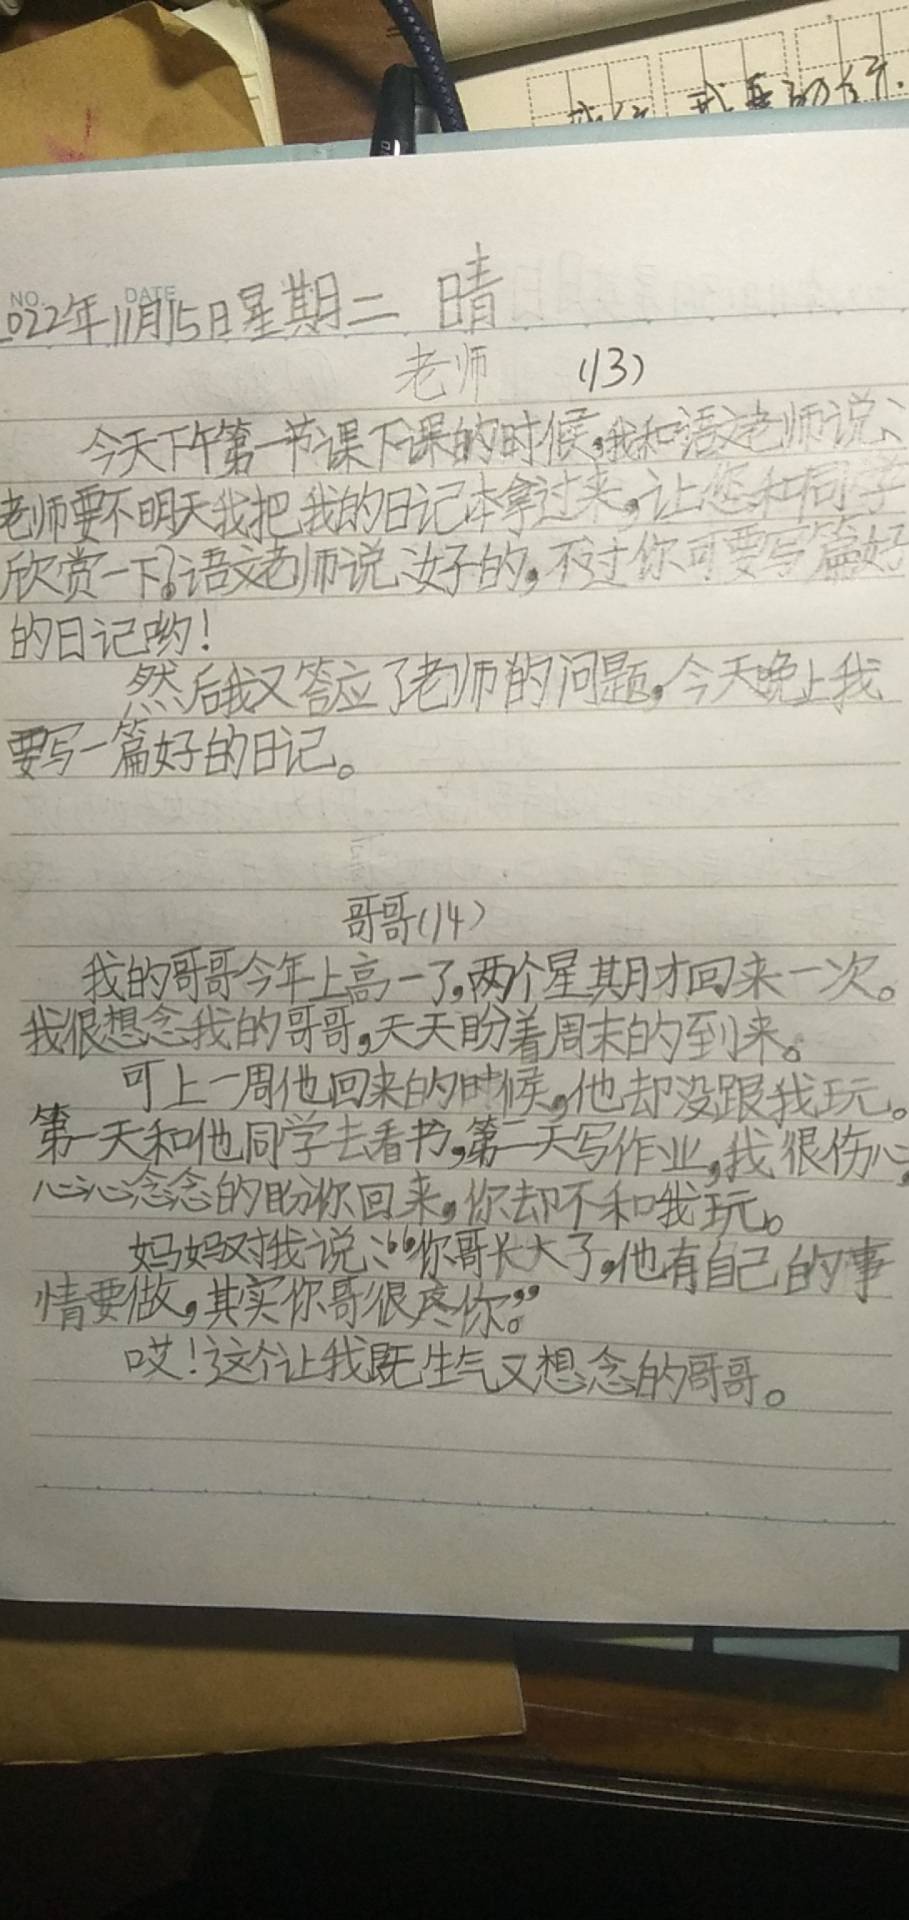 我要的行.
NO. DATE
2022年11月15日星期二 晴
老师 (13)
今天下午第一节课下课的时候,我和语文老师说:
老师要不明天我把我的日记本拿过来,让您和同学
欣赏一下?语文老师说:好的,不过你可要写篇好
的日记哟!
然后我又答应了老师的问题,今天晚上我
要写一篇好的日记。
哥哥(14)
我的哥哥今年上高一了,两个星期才回来一次。
我很想念我的哥哥,天天盼着周末的到来。
可上一周他回来的时候,他却没跟我玩。
第一天和他同学去看书,第二天写作业,我很伤心,
心心念念的盼你回来,你却不和我玩。
妈妈对我说:“你哥长大了,他有自己的事
情要做,其实你哥很疼你。”
哎!这个让我既生气又想念的哥哥。